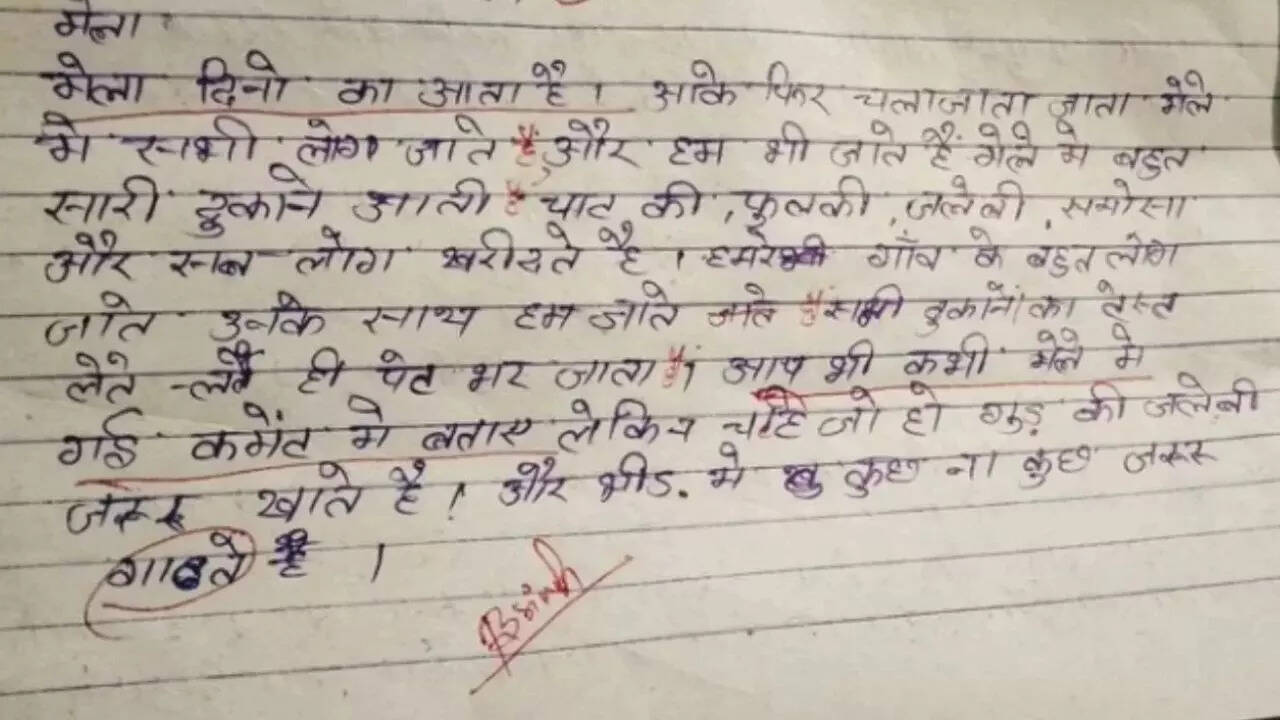 मेला
मेला दिनो का आता है। आके फिर चलाजाता जाता मेले
मे सभी लोग जाते हैं, और हम भी जाते हैं मेले मे बहुत
सारी दुकाने आती है चाट की, फुलकी, जलेबी, समोसा
और सब लोग खरीदते है। हमारे गाँव के बहुत लोग
जाते उनके साथ हम जाते जाते हैं सभी दुकानों का टेस्ट
लेते-लेते ही पेट भर जाता है। आप भी कभी मेले मे
गई कमेंट मे बताए लेकिन चाहे जो हो गुड़ की जलेबी
जरूर खाते है। और भीड. मे कुछ ना कुछ जरूर
है।